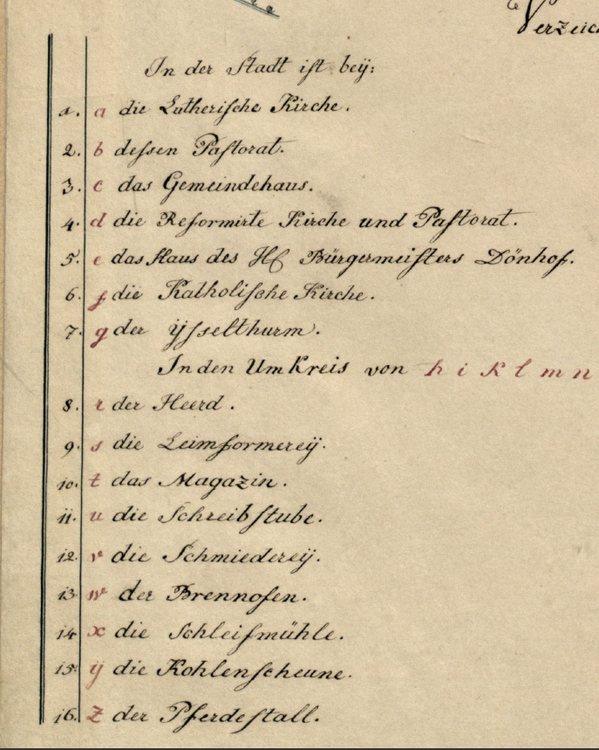 Verzeic
In der Stadt ist beÿ:
1. a die Lutherische Kirche.
2. b dessen Pastorat.
3. c das Gemeindehaus.
4. d die Reformirte Kirche und Pastorat.
5. e das Haus des H Bürgermeisters Dönhof.
6. f die Katholische Kirche.
7. g der ÿsselthurm.
In den Umkreis von h i k l m n
8. r der Heerd.
9. s die Leimformereÿ.
10. t das Magazin.
11. u die Schreibstube.
12. v die Schmiedereÿ.
13. w der Brennofen.
14. x die Schleifmühle.
15. ÿ die Kohlenscheune.
16. z der Pferdestall.